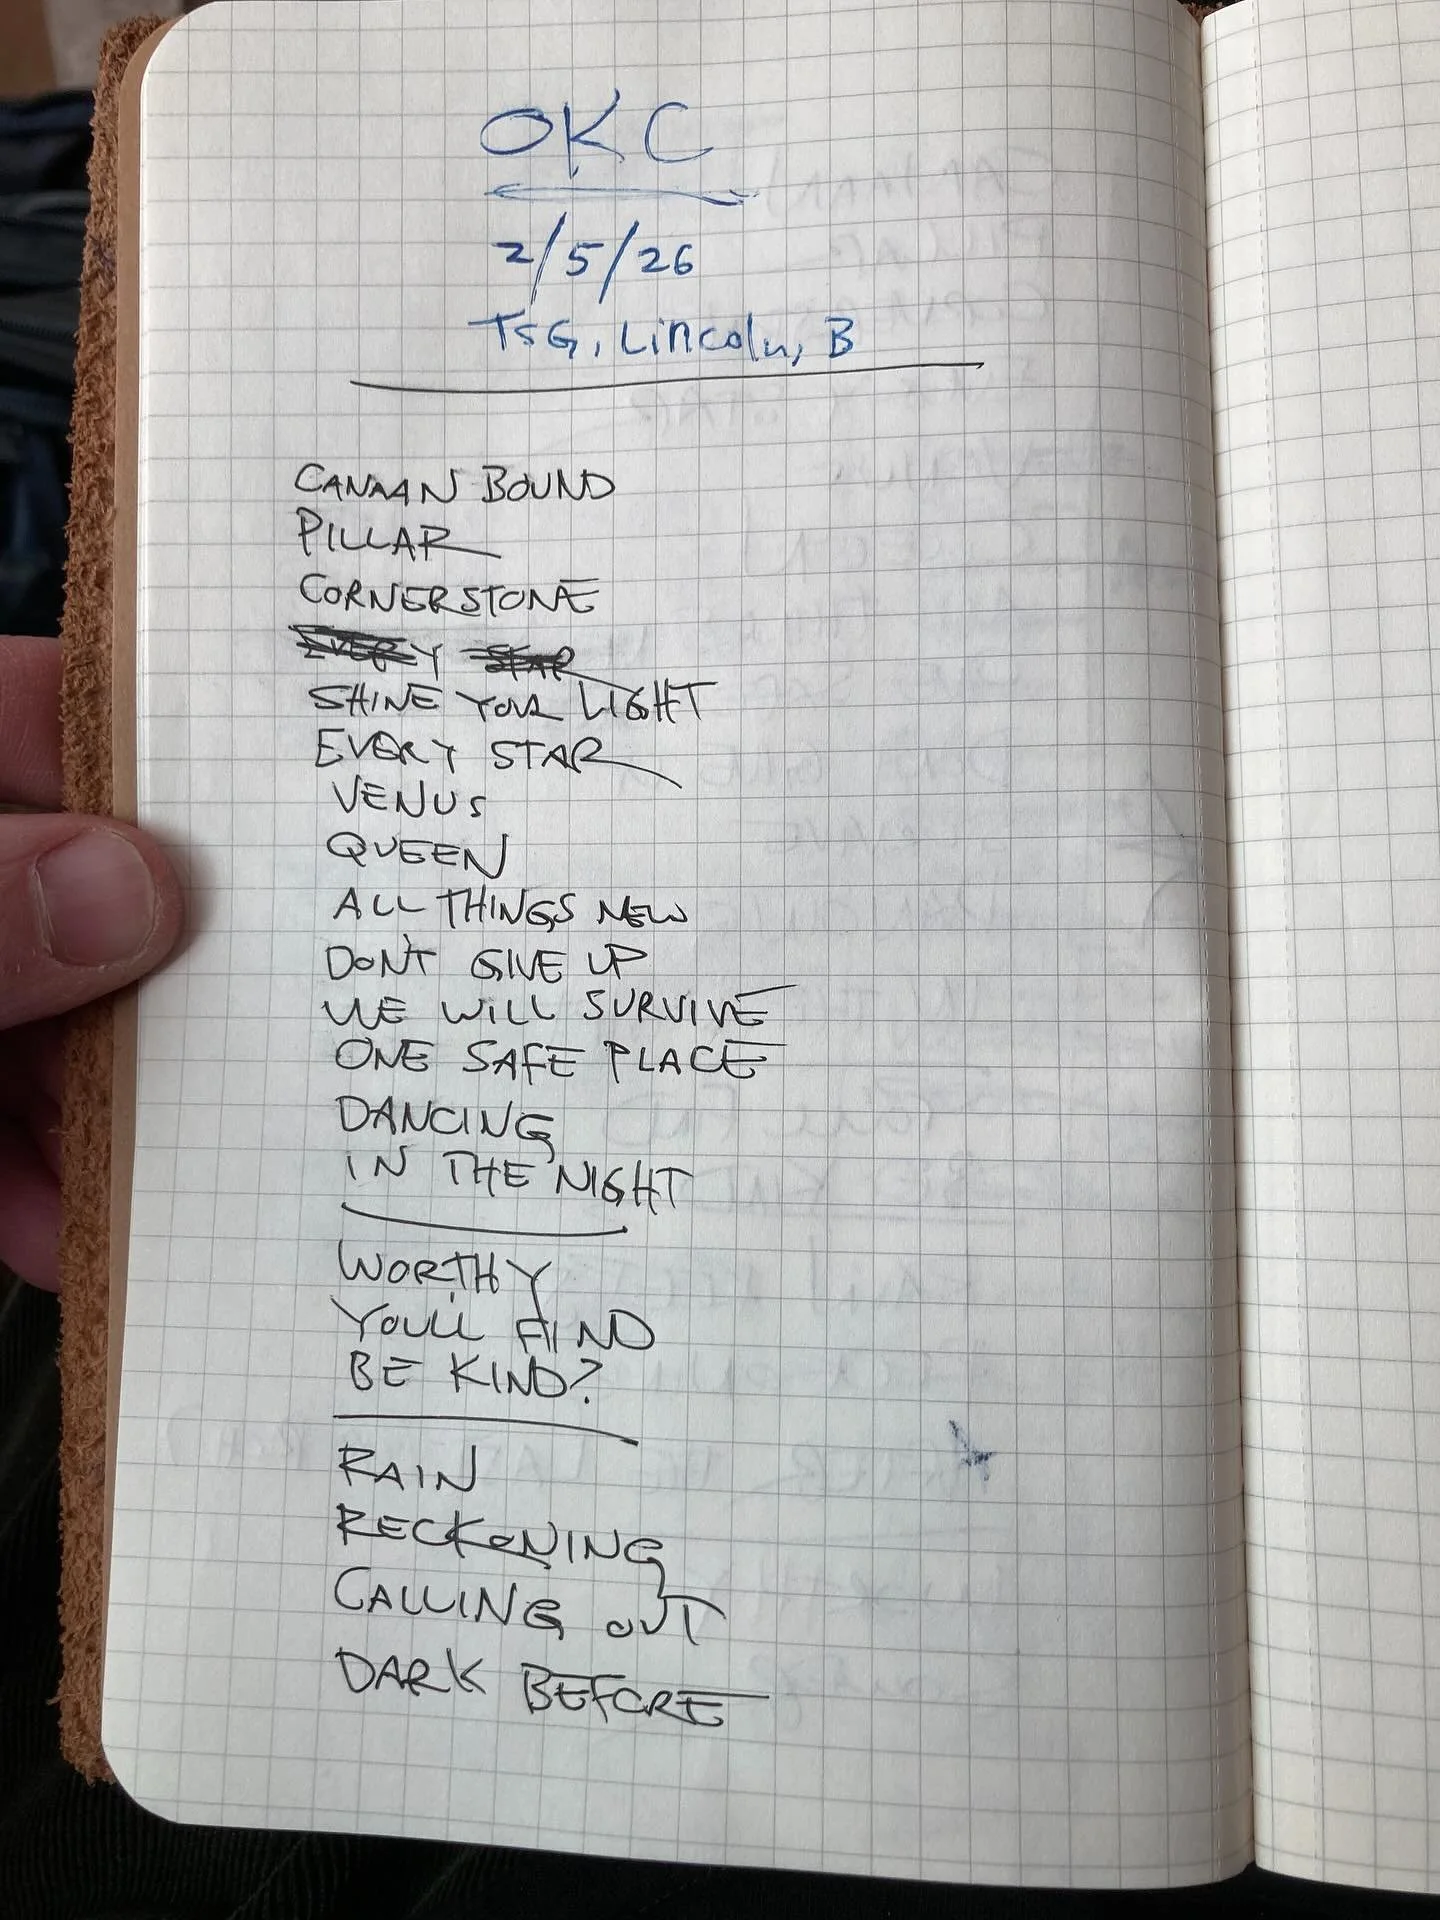 OKC
2/5/26
TSG, Lincoln, B
CANAAN BOUND
PILLAR
CORNERSTONE
EVERY STAR
SHINE YOUR LIGHT
EVERY STAR
VENUS
QUEEN
ALL THINGS NEW
DON'T GIVE UP
WE WILL SURVIVE
ONE SAFE PLACE
DANCING
IN THE NIGHT
WORTHY
YOU'LL FIND
BE KIND?
RAIN
RECKONING
CALLING OUT
DARK BEFORE